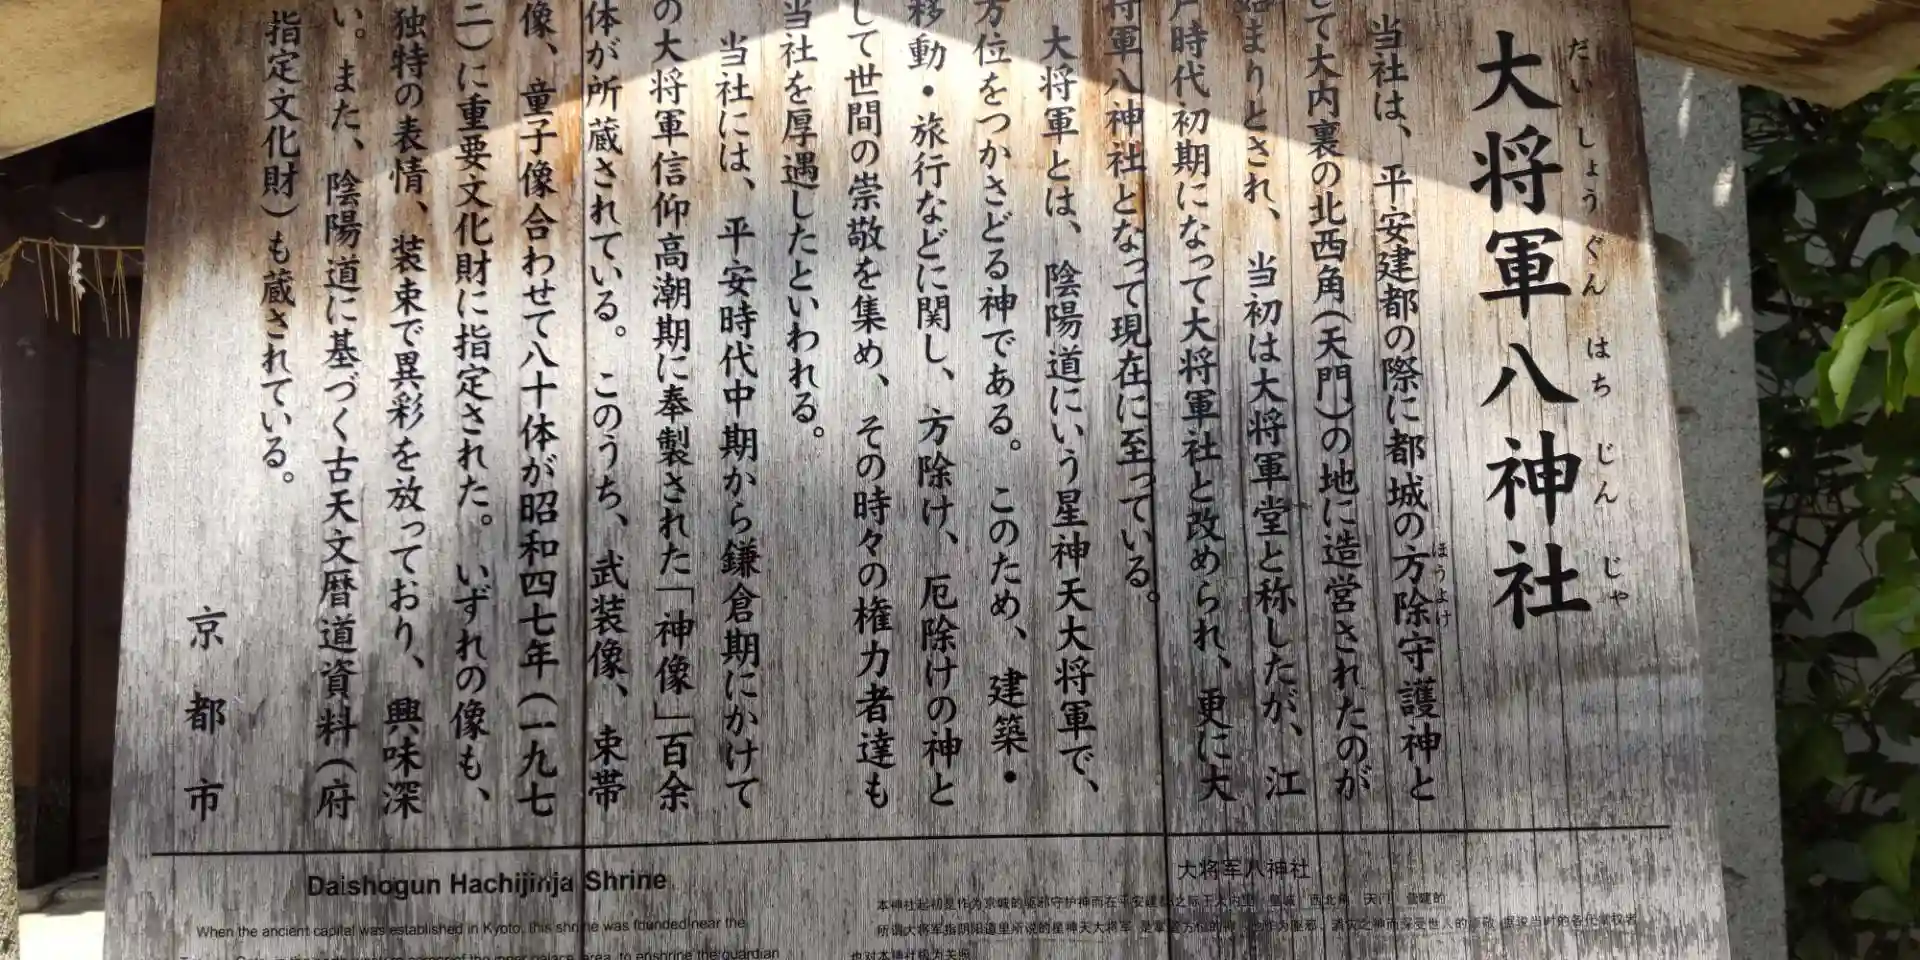 大将軍八神社
だいしょうぐんはちじんじゃ
当社は、平安建都の際に都城の方除守護神と
ほうよけ
して大内裏の北西角(天門)の地に造営されたのが
始まりとされ、当初は大将軍堂と称したが、江
戸時代初期になって大将軍社と改められ、更に大
将軍八神社となって現在に至っている。
大将軍とは、陰陽道にいう星神天大将軍で、
方位をつかさどる神である。このため、建築・
移動・旅行などに関し、方除け、厄除けの神と
して世間の崇敬を集め、その時々の権力者達も
当社を厚遇したといわれる。
当社には、平安時代中期から鎌倉期にかけて
の大将軍信仰高潮期に奉製された「神像」百余
体が所蔵されている。このうち、武装像、束帯
像、童子像合わせて八十体が昭和四七年(一九七
二)に重要文化財に指定された。いずれの像も、
独特の表情、装束で異彩を放っており、興味深
い。また、陰陽道に基づく古天文暦道資料(府
指定文化財)も蔵されている。
京都市
Daishogun Hachijinja Shrine
When the ancient capital was established in Kyoto, this shrine was founded near the
corner of the inner palace area, to enshrine the guardian
大将军八神社
本神社起初是作为京城的驱邪守护神而在平安建都之际于大内里 皇城 西北角 天门 营建的
所谓大将军指阴阳道里所说的星神天大将军 是掌管方位的神
也对本神社极为关照